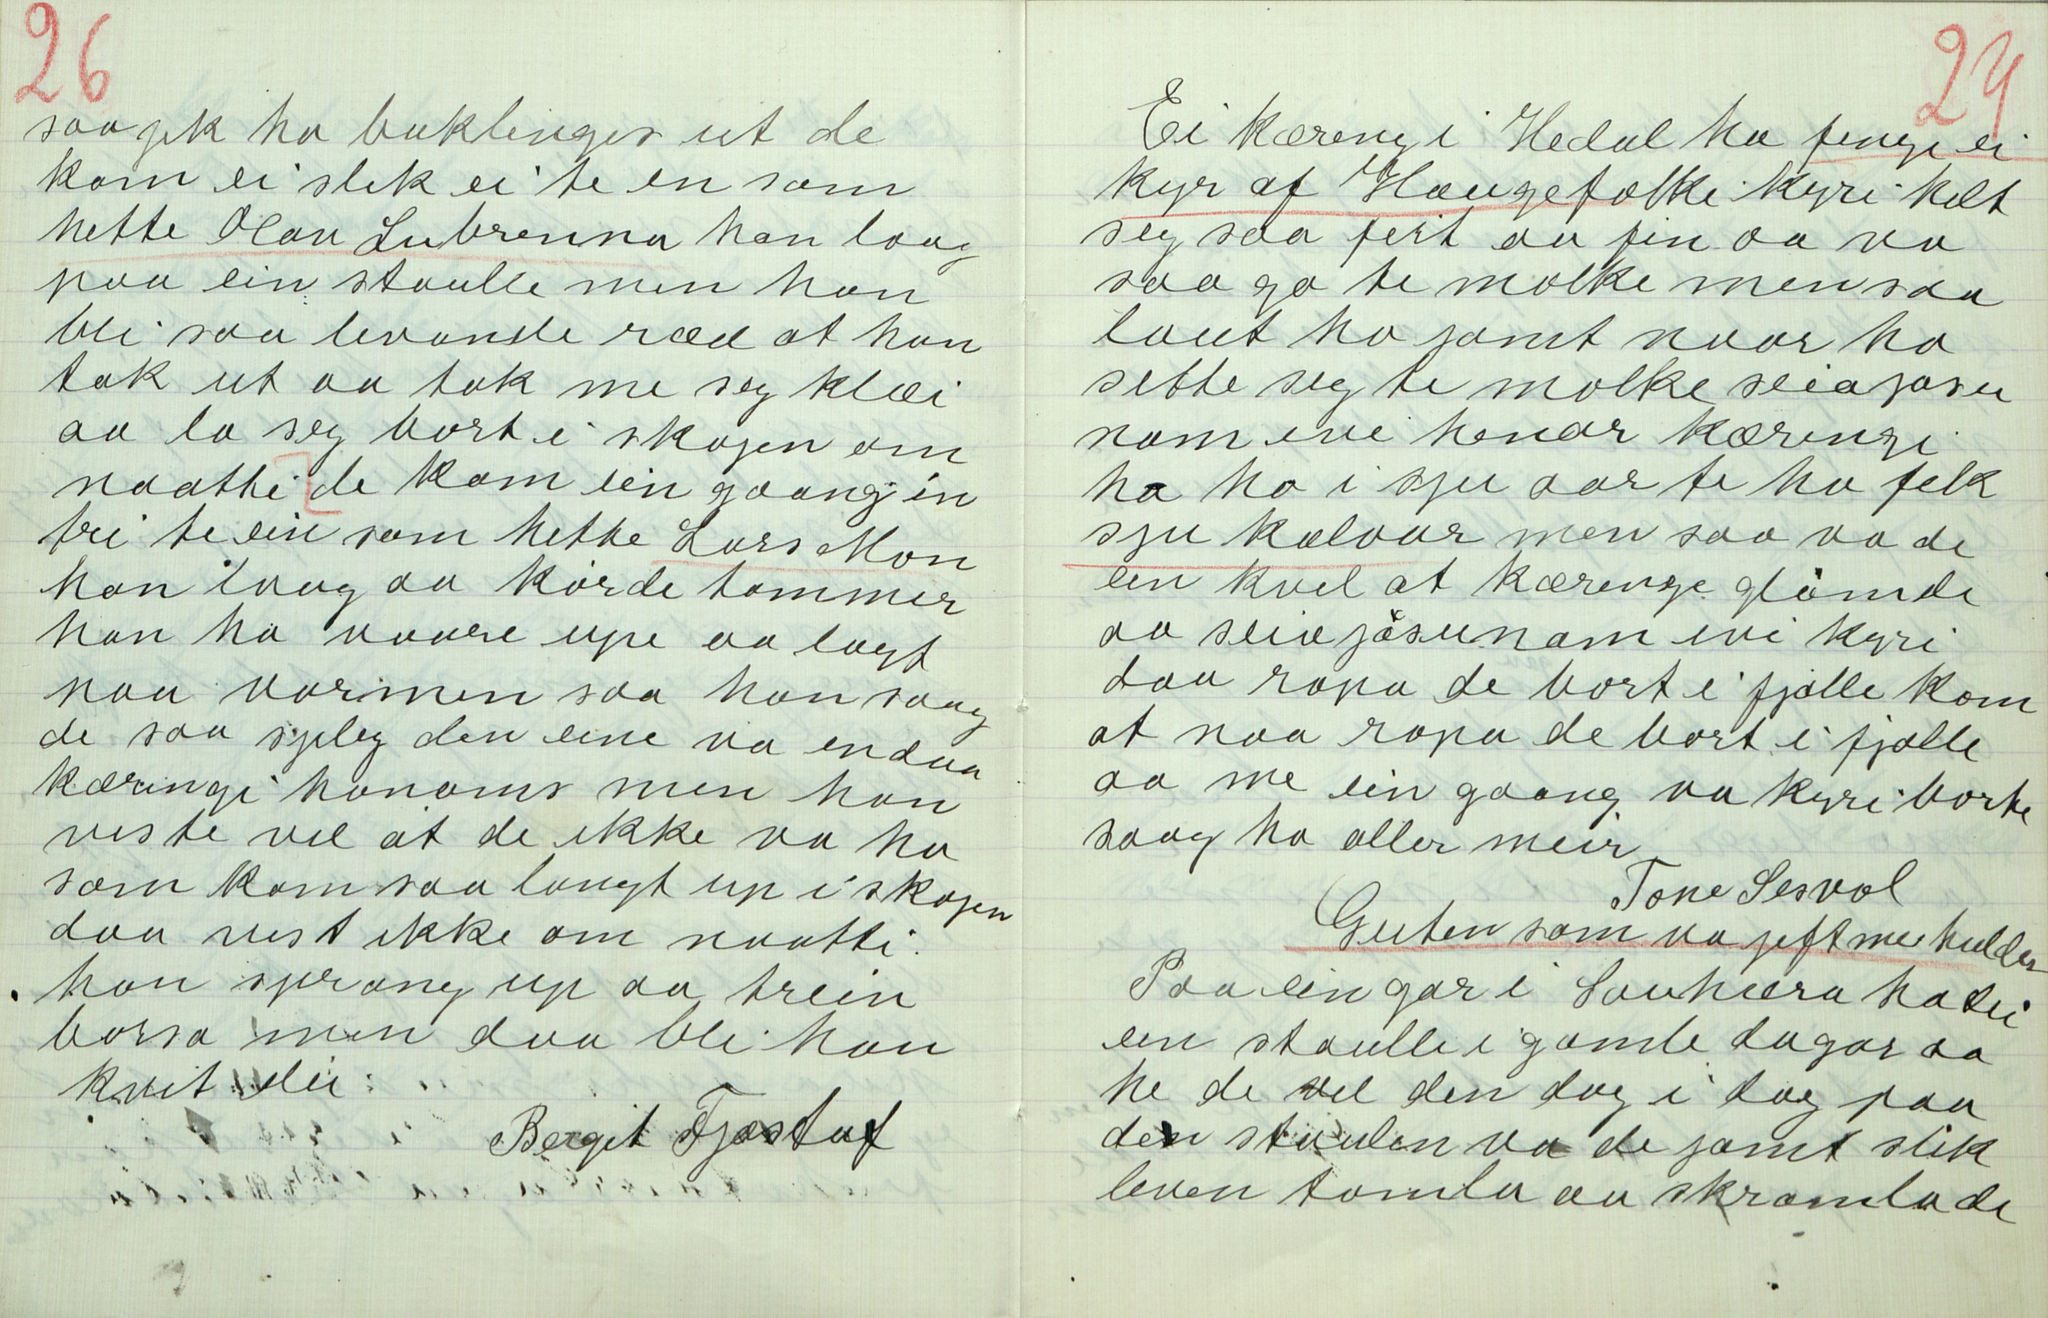 26
saa gik ho baklenges ut de
kom ei slik ei te en som
hette Olav Lubrenna han laag
paa ein staulle men han
bli saa levande ræd at han
tok ut aa tok me seg klæi
aa la seg bort i skogen om
naatti de kom ein gaang in
tri te ein som hette Lars Mon
han laag aa körde tømmer
han ha vaare upe aa lagt
paa varmen saa han saag
de saa spleg den eine va endaa
kæringi honoms men han
viste vel at de ikke va ho
som kom saa langt up i skogen
daa vist ikke om naatti.
han sprang up aa trein
borsa men daa bli han
kvit dei
Bergit Fjøstuf
27
Ei kæreng i Hedal ha fenge ei
kyr af Haugefolke kyri helt
seg saa feit aa fin aa va
saa go te molke men saa
laut ho jamt naar ho
sette seg te molke seia jøsu
nam ivi henar kæringi
ha ho i sju aar te ho fekk
sju kalvar men saa va de
ein kvel at kærenge glömde
aa seia jösunam ivi kyri
daa ropa de bort i fjølle kom
at naa ropa de bort i fjølle
aa me ein gaang va kyri borte
saag ho aller meir
Tone Sesvol
Guten som va jift mee hulder
Paa ein gar i Sauhæra ha dei
ein staulle i gamle dagar aa
he de vel den dag i dag paa
den staulen va de jamt slik
leven tamla aa skramla de